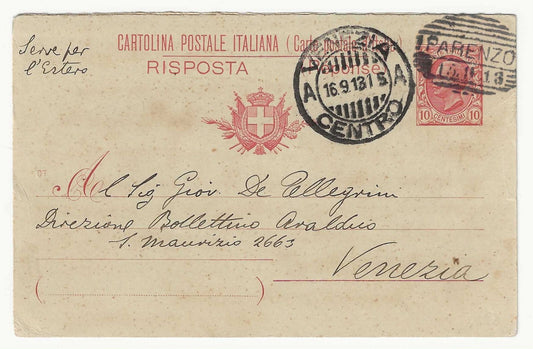 Serve per
l'Estero
CARTOLINA POSTALE ITALIANA (Carte postale
RISPOSTA
VENEZIA
CENTRO
A A
16.9.13
PARENZO
10 CENTESIMI 10
Al Sig Giov. De Pellegrini
Direzione Bollettino Araldico
S. Maurizio 2663
Venezia